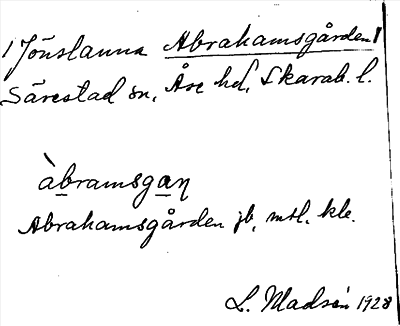 /Jönslanna Abrahamsgården/
Särestad sn, Åse hd, Skarab. l.
àbramsgaꞃ
Abrahamsgården jb, mtl. kle.
L. Madsén 1928